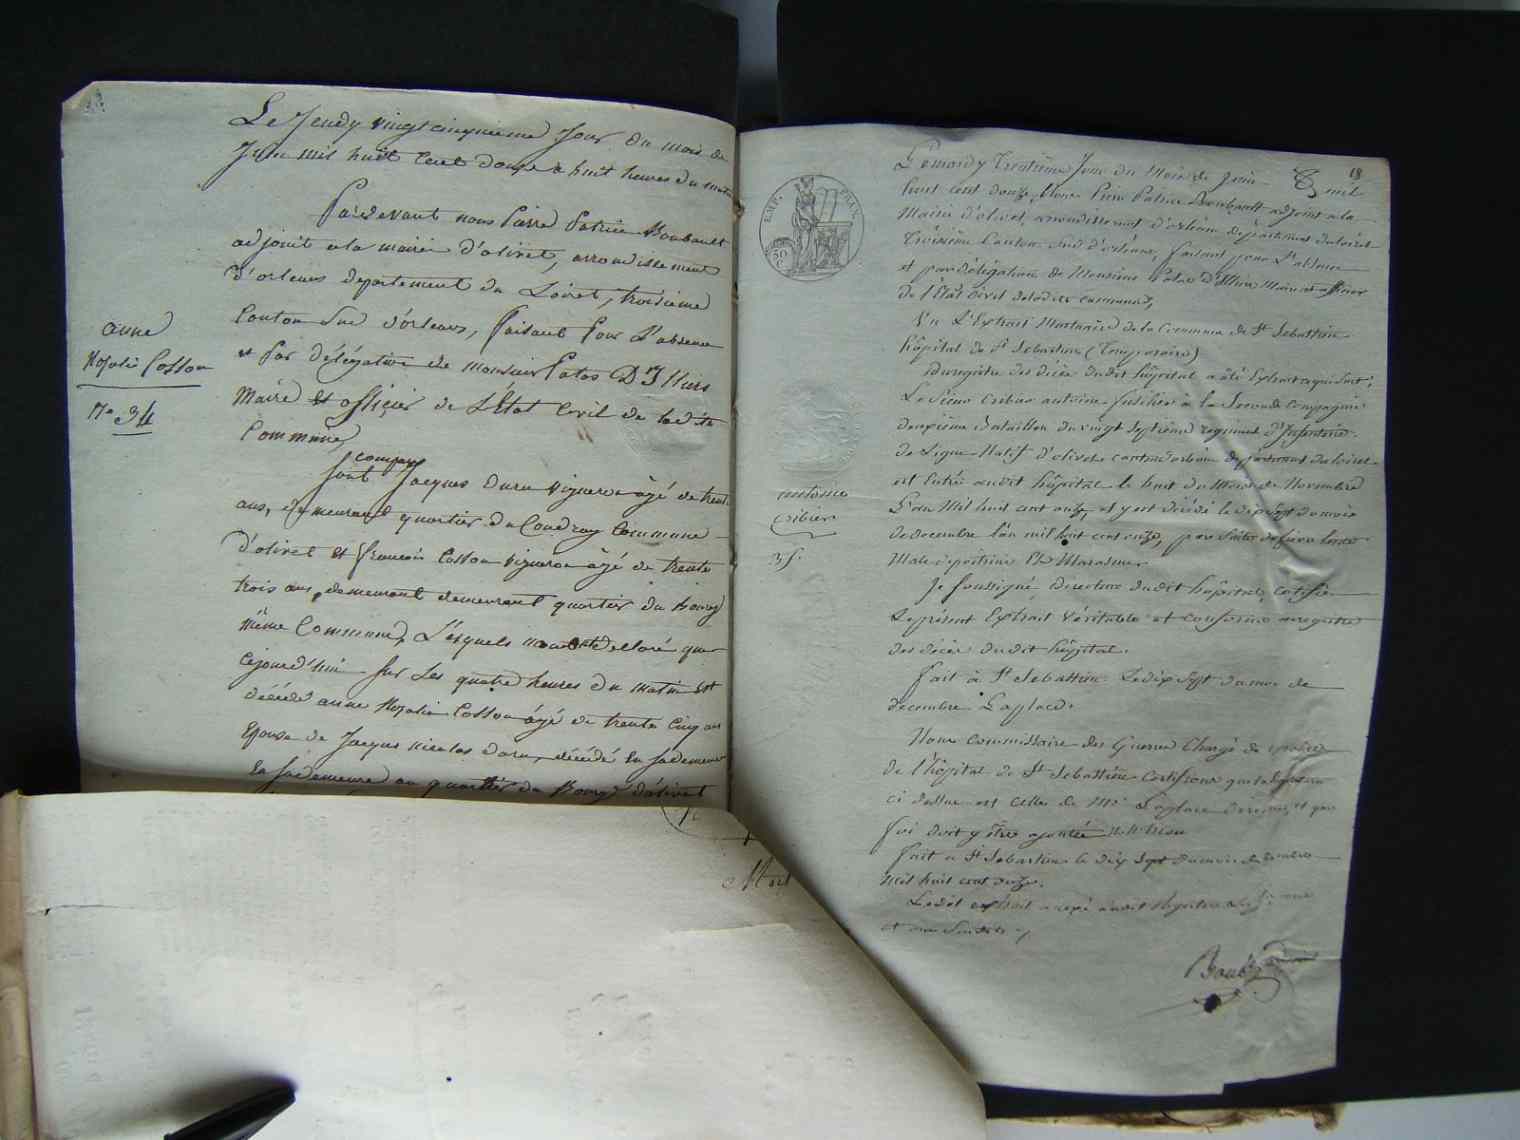 Le Jeudy vingt cinquieme Jour du mois de
Juin mil huit Cent douze a huit heures du matin
Pardevant nous Pierre Patrice Boubault
adjoint a la mairie d'olivet, arrondissement
d'orleans departement du Loiret, troisieme
Canton Sud d'orleans, faisant Pour L'absence
et Par délégation de monsieur Patas D'Illiers
Maire et officier de L'État Civil de ladite
Commune,
Sont comparus Jacques daru vigneron âgé de trente
ans, demeurant quartier du Coudray Commune
d'olivet et françois Cosson vigneron âgé de trente
trois ans, demeurant demeurant quartier du Bourg
même Commune, Lesquels nous ont declaré que
Cejourd'hui sur Les quatre heures du matin est
décédé anne Rozalie Cosson âgé de trente Cinq ans
Epouse de Jacques nicolas daru, décédé En sa demeure
En sa demeure au quartier du Bourg d'olivet
anne
Rozalie Cosson
N° 34
Mort
18
Le mardy Trentième Jour du Mois de Juin mil
huit cent douze, Nous Pierre Patrice Boubault adjoint a la
Mairie d'olivet, arrondissement d'orléans département du loiret
Troisième Canton Sud d'orléans, faisant pour L'absence
et par délégation de Monsieur Patas d'Illiers Maire et officier
de L'État Civil de ladite commune,
Vu L'Extrait Mortuaire de la Commune de St Sebastien
hôpital de St Sebastien (Temporaire)
Du registre des décès dudit hôpital a été Extrait ce qui suit;
Le Sieur Cribier antoine fusilier à la Seconde Compagnie
deuxième Bataillon du vingt Septième regiment d'Infanterie
de Ligne Natif d'olivet canton d'orléans département du loiret
est Entré audit hôpital le huit du Mois de Novembre
L'an Mil huit cent onze, et y est décédé le dix sept du mois
de decembre l'an mil huit cent onze, par Suite de fièvre lente
Mal de poitrine Et Marasme
Je Soussigné Directeur dudit hôpital, certifie
Le présent Extrait Véritable et conforme au registre
des décès dudit hôpital.
fait à St Sebastien Le dix Sept du mois de
decembre Laplace.
Nous Commissaire des Guerres Chargé de la police
de l'hôpital de St Sebastien Certifions que la Signature
ci dessus est Celle de Mr Laplace Directeur, et que
foi doit y être ajoutée
fait a St Sebastien le dix Sept du mois de decembre
Mil huit cent onze.
Ledit extrait
Boubault
EMP. FRAN.
50 C
antoine
Cribier
35.